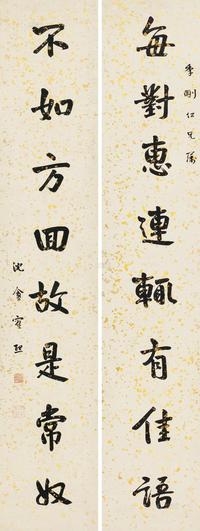 季剛仁兄屬
每對惠連輒有佳語
不如方回故是常奴
沈曾植